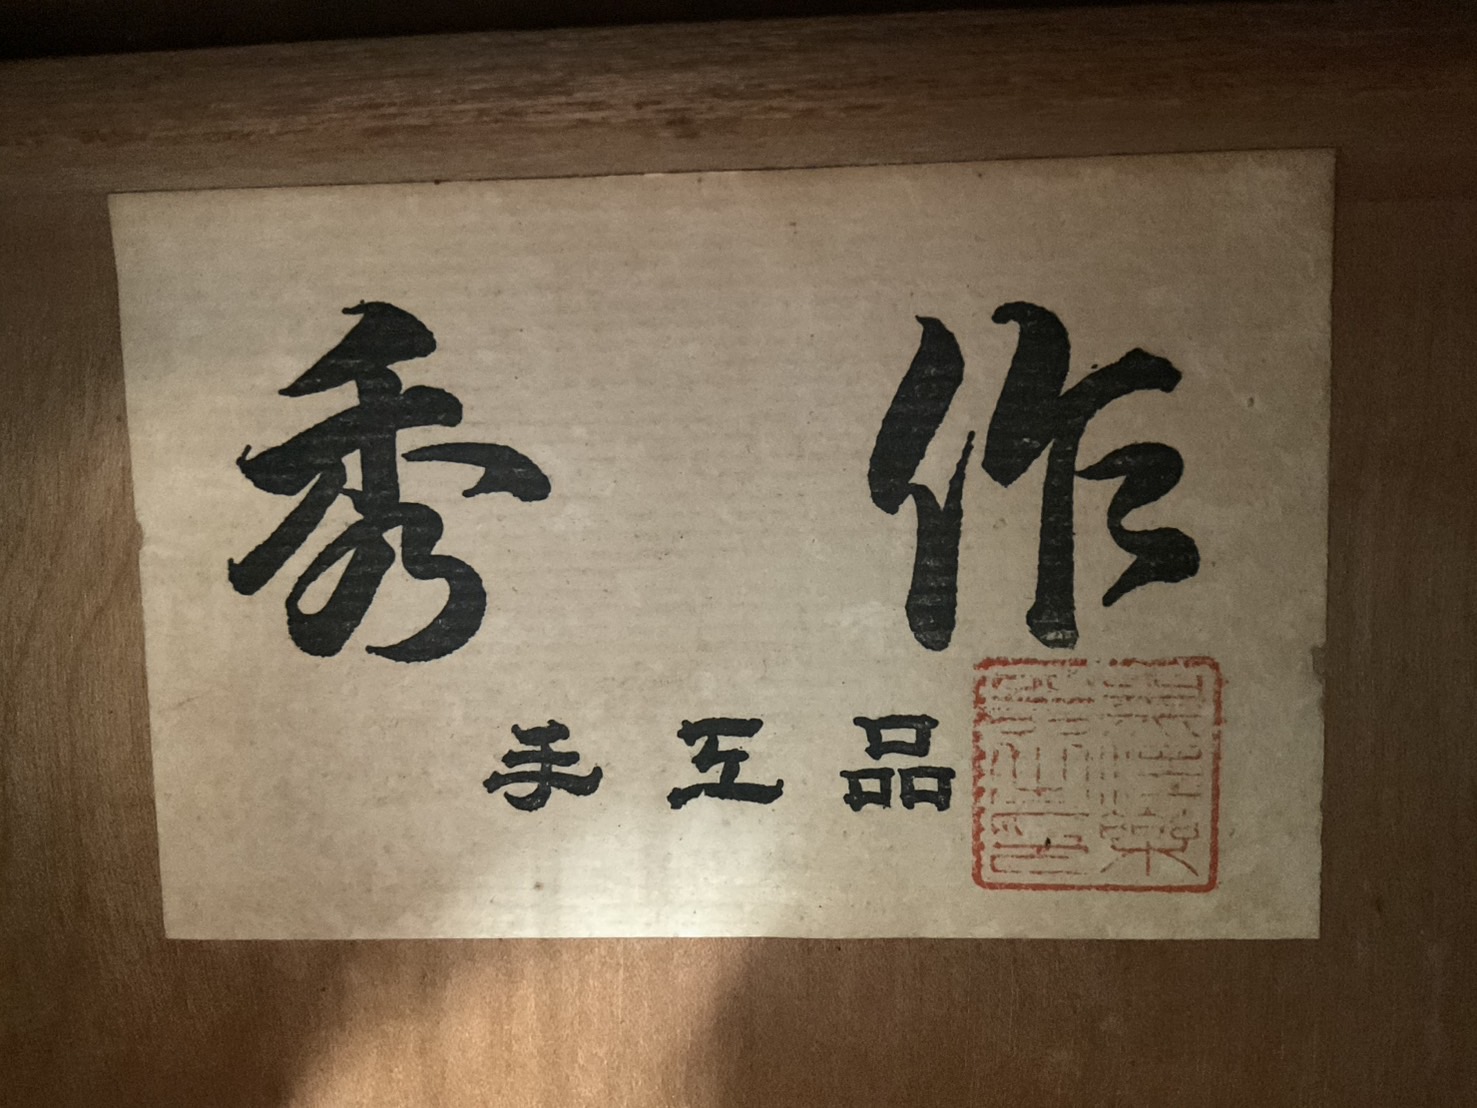 秀作
手工品